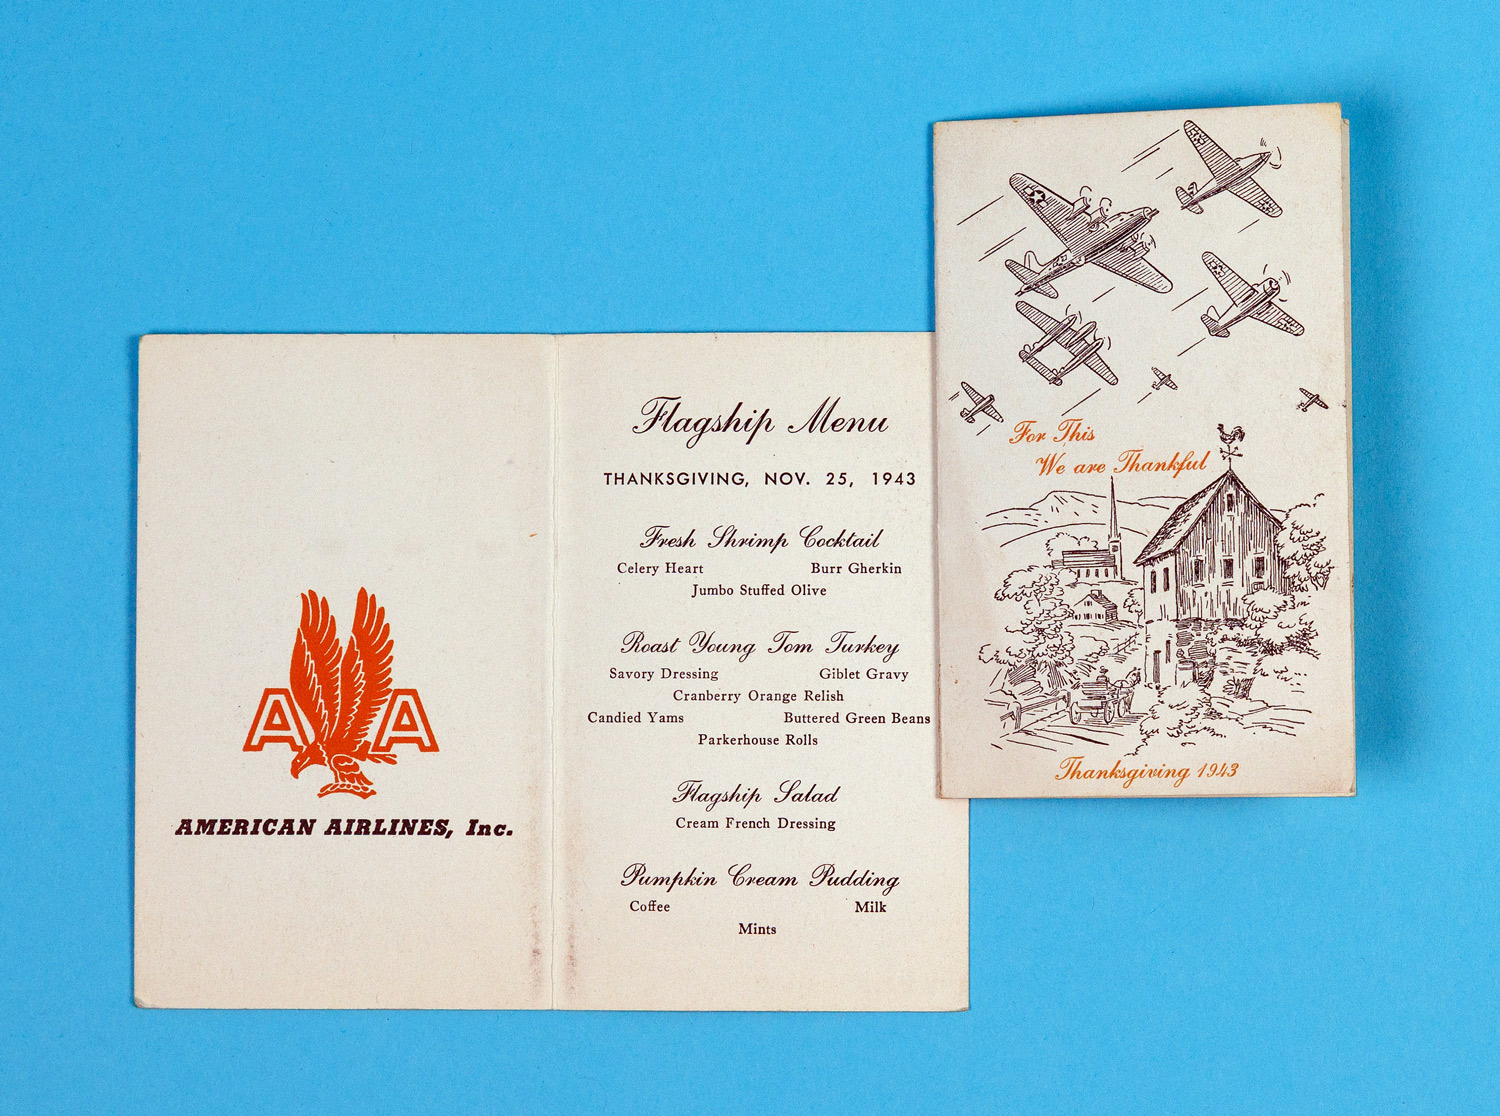 A A
AMERICAN AIRLINES, Inc.
Flagship Menu
THANKSGIVING, NOV. 25, 1943
Fresh Shrimp Cocktail
Celery Heart Burr Gherkin
Jumbo Stuffed Olive
Roast Young Tom Turkey
Savory Dressing Giblet Gravy
Cranberry Orange Relish
Candied Yams Buttered Green Beans
Parkerhouse Rolls
Flagship Salad
Cream French Dressing
Pumpkin Cream Pudding
Coffee Milk
Mints
For This
We are Thankful
Thanksgiving 1943